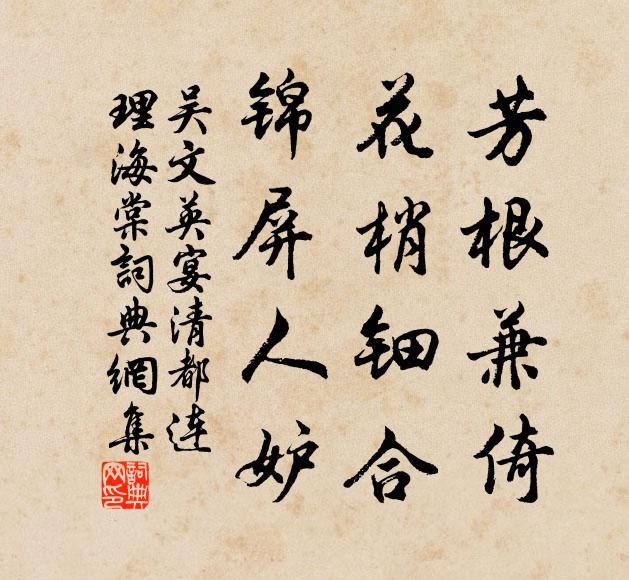 芳根兼倚
花梢钿合
锦屏人妒
吴文英宴清都连
理海棠詞典網集
詞典
网印